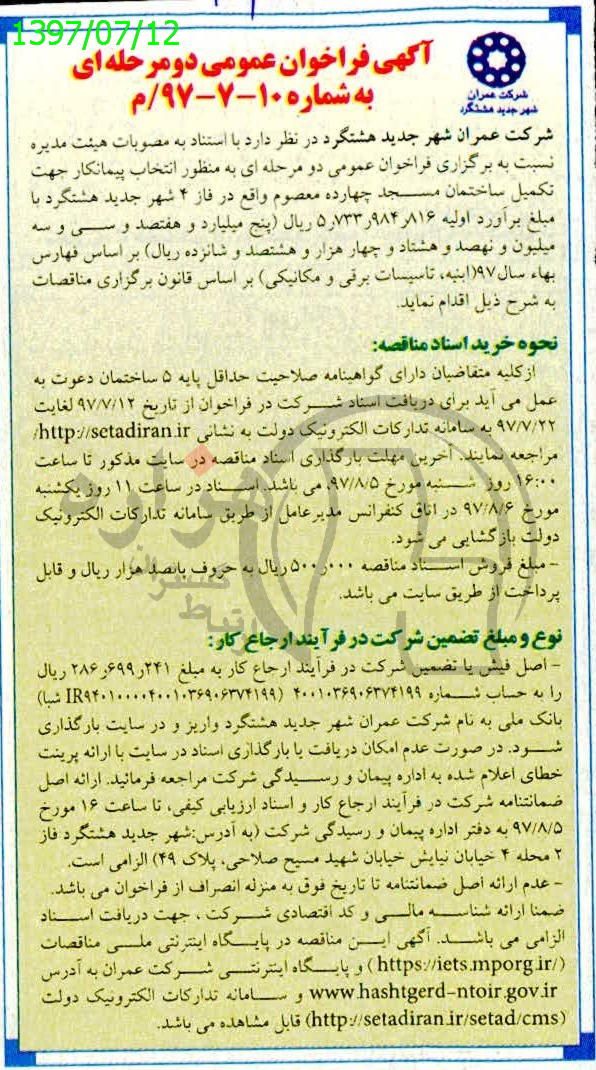 1397/07/12
آگهی فراخوان عمومی دو مرحله ای
به شماره ۱۰-۷-۹۷/م
شرکت عمران
شهر جدید هشتگرد
شرکت عمران شهر جدید هشتگرد در نظر دارد با استناد به مصوبات هیئت مدیره
نسبت به برگزاری فراخوان عمومی دو مرحله ای به منظور انتخاب پیمانکار جهت
تکمیل ساختمان مسجد چهارده معصوم واقع در فاز ۴ شهر جدید هشتگرد با
مبلغ برآورد اولیه ۵٫۷۳۳٫۹۸۴٫۸۱۶ ریال (پنج میلیارد و هفتصد و سی و سه
میلیون و نهصد و هشتاد و چهار هزار و هشتصد و شانزده ریال) بر اساس فهارس
بهاء سال ۹۷(ابنیه، تاسیسات برقی و مکانیکی) بر اساس قانون برگزاری مناقصات
به شرح ذیل اقدام نماید.
نحوه خرید اسناد مناقصه:
ازکلیه متقاضیان دارای گواهینامه صلاحیت حداقل پایه ۵ ساختمان دعوت به
عمل می آید برای دریافت اسناد شرکت در فراخوان از تاریخ ۹۷/۷/۱۲ لغایت
۹۷/۷/۲۲ به سامانه تدارکات الکترونیک دولت به نشانی http://setadiran.ir/
مراجعه نمایند. آخرین مهلت بارگذاری اسناد مناقصه در سایت مذکور تا ساعت
۱۶:۰۰ روز شنبه مورخ ۹۷/۸/۵، می باشد. اسناد در ساعت ۱۱ روز یکشنبه
مورخ ۹۷/۸/۶ در اتاق کنفرانس مدیرعامل از طریق سامانه تدارکات الکترونیک
دولت بازگشایی می شود.
- مبلغ فروش اسناد مناقصه ۵۰۰٫۰۰۰ ریال به حروف پانصد هزار ریال و قابل
پرداخت از طریق سایت می باشد.
نوع و مبلغ تضمین شرکت در فرآیند ارجاع کار:
- اصل فیش یا تضمین شرکت در فرآیند ارجاع کار به مبلغ ۲۸۶٫۶۹۹٫۲۴۱ ریال
را به حساب شماره ۴۰۰۱۰۳۶۹۰۶۳۷۴۱۹۹ (IR۹۴۰۱۰۰۰۰۴۰۰۱۰۳۶۹۰۶۳۷۴۱۹۹ شبا)
بانک ملی به نام شرکت عمران شهر جدید هشتگرد واریز و در سایت بارگذاری
شود. در صورت عدم امکان دریافت یا بارگذاری اسناد در سایت با ارائه پرینت
خطای اعلام شده به اداره پیمان و رسیدگی شرکت مراجعه فرمائید. ارائه اصل
ضمانتنامه شرکت در فرآیند ارجاع کار و اسناد ارزیابی کیفی، تا ساعت ۱۶ مورخ
۹۷/۸/۵ به دفتر اداره پیمان و رسیدگی شرکت (به آدرس:شهر جدید هشتگرد فاز
۲ محله ۴ خیابان نیایش خیابان شهید مسیح صلاحی، پلاک ۴۹) الزامی است.
- عدم ارائه اصل ضمانتنامه تا تاریخ فوق به منزله انصراف از فراخوان می باشد.
ضمنا ارائه شناسه مالی و کد اقتصادی شرکت ، جهت دریافت اسناد
الزامی می باشد. آگهی این مناقصه در پایگاه اینترنتی ملی مناقصات
(https://iets.mporg.ir/) و پایگاه اینترنتی شرکت عمران به آدرس
www.hashtgerd-ntoir.gov.ir و سامانه تدارکات الکترونیک دولت
(http://setadiran.ir/setad/cms) قابل مشاهده می باشد.